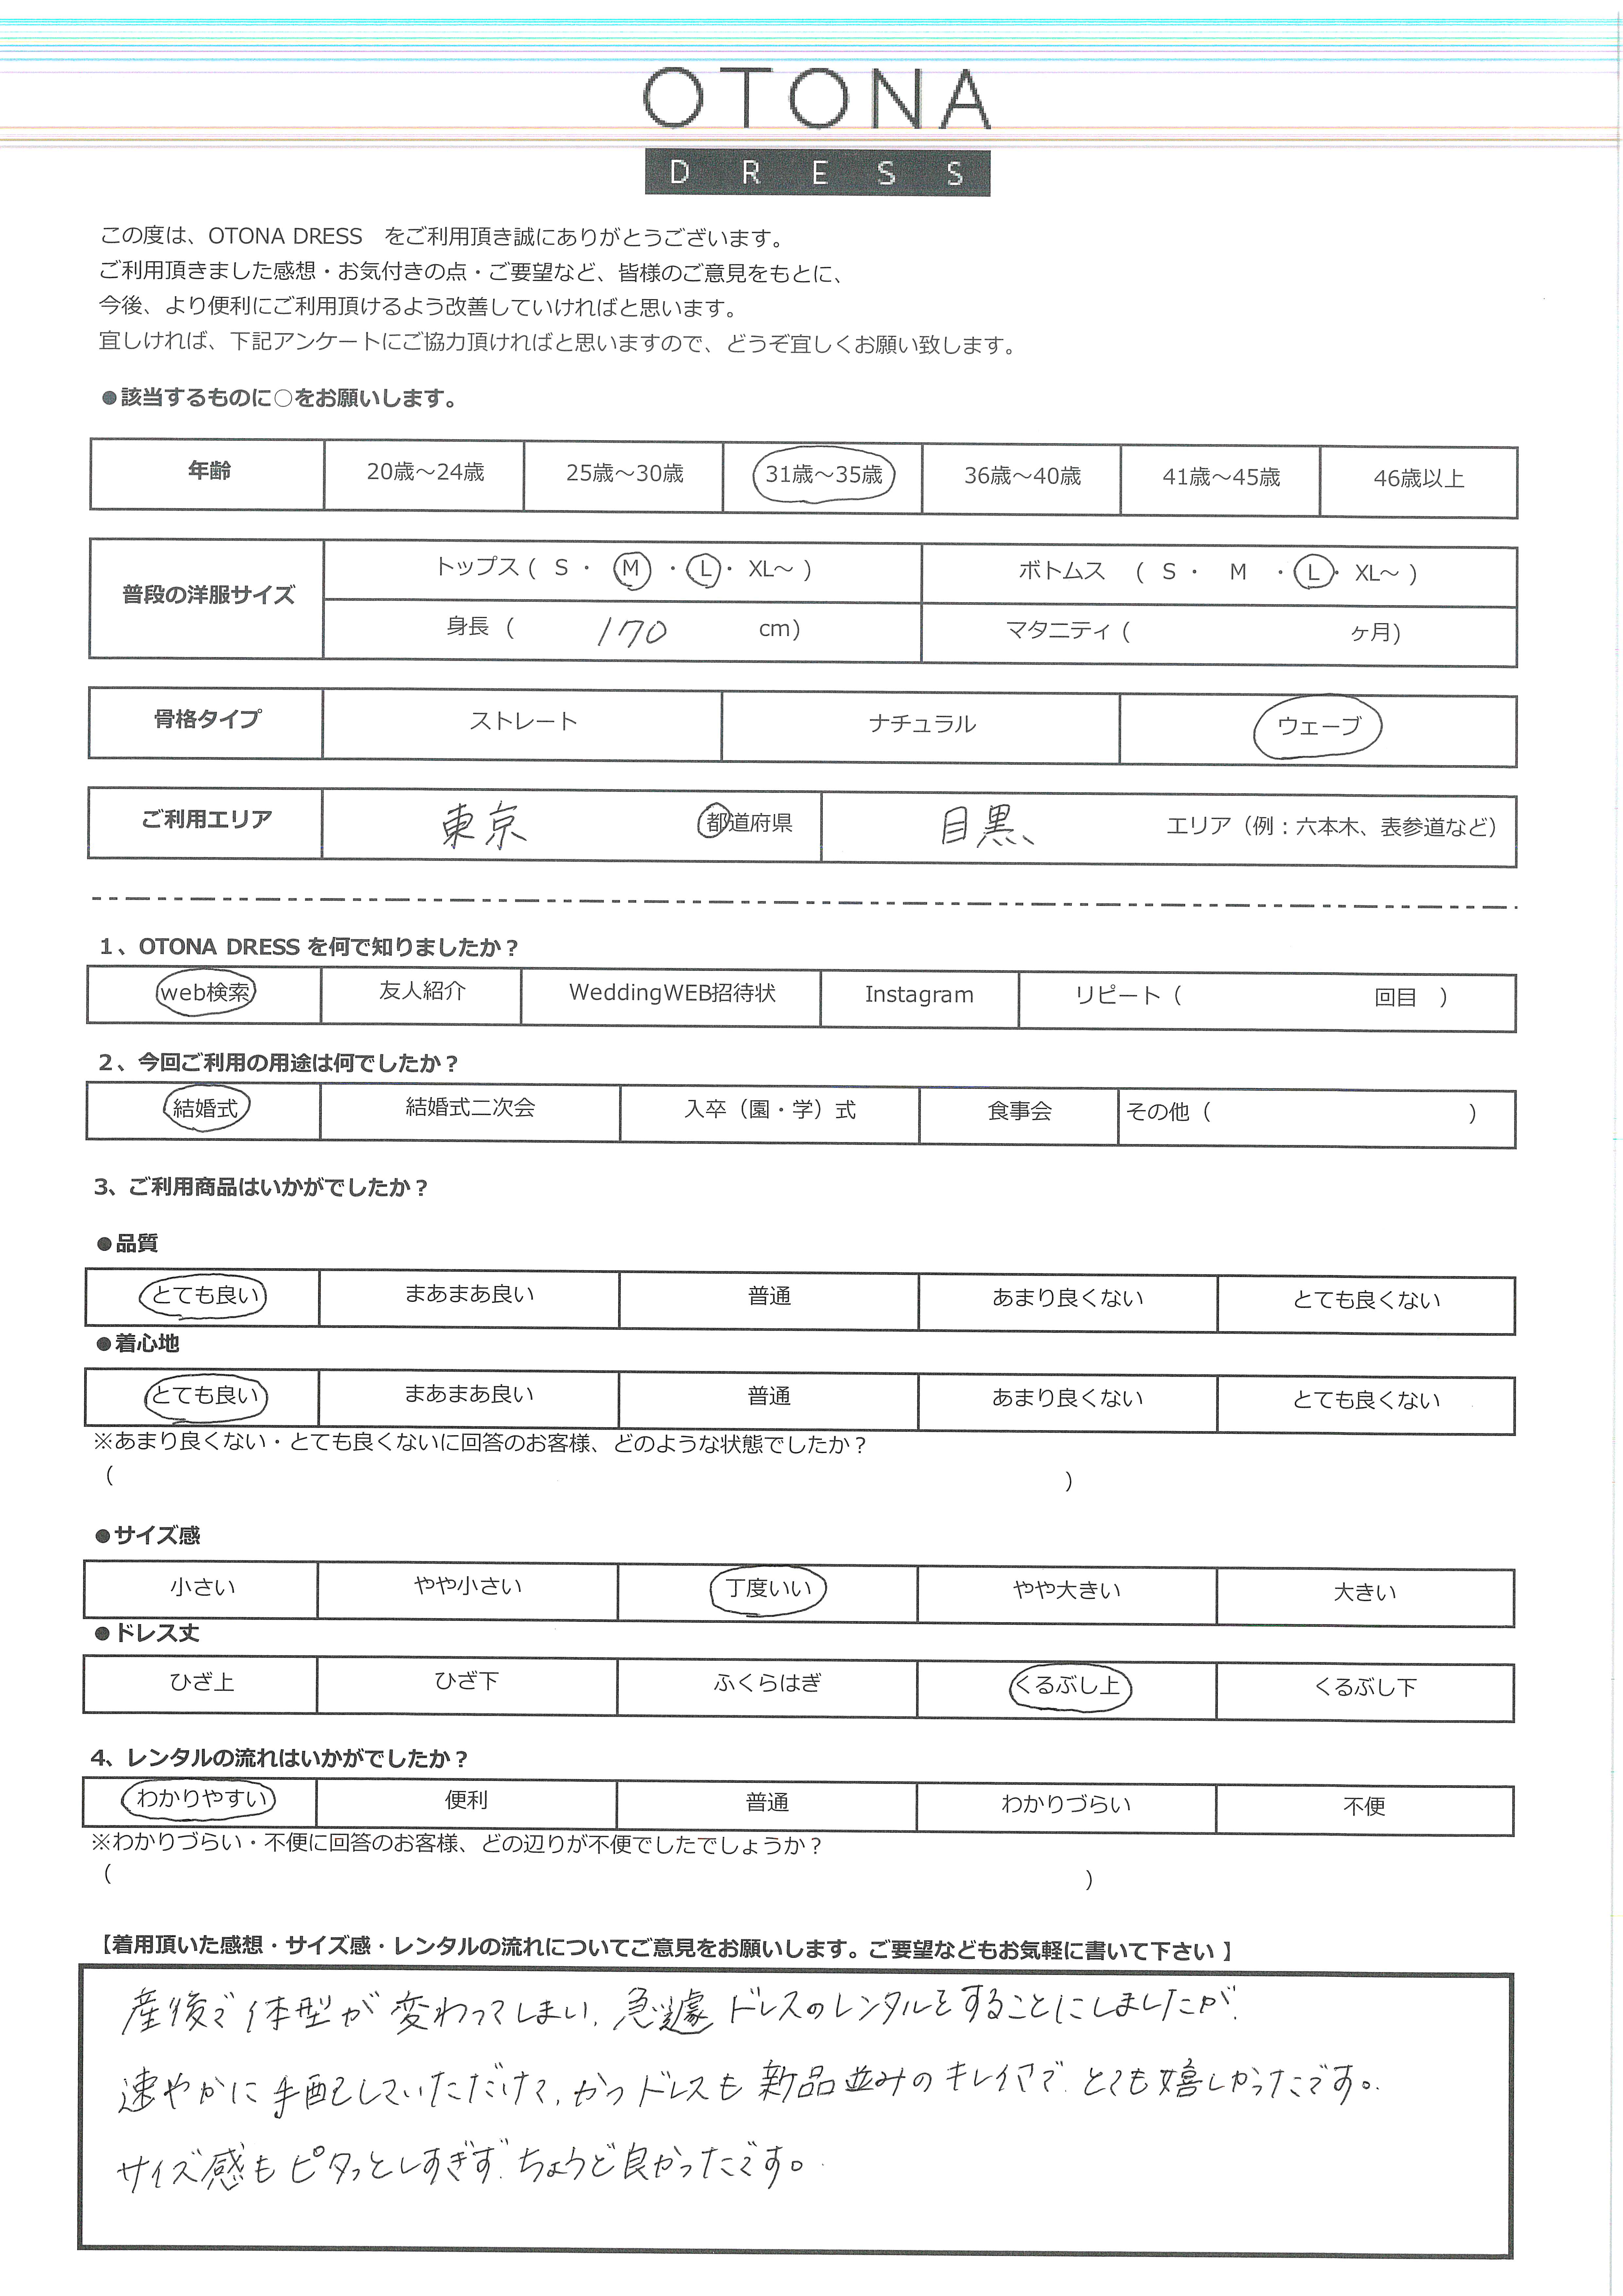 OTONA
DRESS
この度は、OTONA DRESS　をご利用頂き誠にありがとうございます。
ご利用頂きました感想・お気付きの点・ご要望など、皆様のご意見をもとに、
今後、より便利にご利用頂けるよう改善していければと思います。
宜しければ、下記アンケートにご協力頂ければと思いますので、どうぞ宜しくお願い致します。
●該当するものに○をお願いします。
年齢 20歳～24歳 25歳～30歳 31歳～35歳 36歳～40歳 41歳～45歳 46歳以上
普段の洋服サイズ トップス ( S ・ M ・ L ・ XL～ ) ボトムス ( S ・ M ・ L ・ XL～ )
身長 ( 170 cm) マタニティ ( ヶ月)
骨格タイプ ストレート ナチュラル ウェーブ
ご利用エリア 東京 都道府県 目黒、 エリア（例：六本木、表参道など）
1、OTONA DRESS を何で知りましたか？
web検索 友人紹介 WeddingWEB招待状 Instagram リピート（ 回目 ）
2、今回ご利用の用途は何でしたか？
結婚式 結婚式二次会 入卒（園・学）式 食事会 その他（ ）
3、ご利用商品はいかがでしたか？
●品質
とても良い まあまあ良い 普通 あまり良くない とても良くない
●着心地
とても良い まあまあ良い 普通 あまり良くない とても良くない
※あまり良くない・とても良くないに回答のお客様、どのような状態でしたか？
（ ）
●サイズ感
小さい やや小さい 丁度いい やや大きい 大きい
●ドレス丈
ひざ上 ひざ下 ふくらはぎ くるぶし上 くるぶし下
4、レンタルの流れはいかがでしたか？
わかりやすい 便利 普通 わかりづらい 不便
※わかりづらい・不便に回答のお客様、どの辺りが不便でしたでしょうか？
（ ）
【着用頂いた感想・サイズ感・レンタルの流れについてご意見をお願いします。ご要望などもお気軽に書いて下さい 】
産後で体型が変わってしまい、急遽ドレスのレンタルをすることにしましたが、
速やかに手配していただけて、かつドレスも新品並みのキレイさで、とても嬉しかったです。
サイズ感もピタっとしすぎず、ちょうど良かったです。